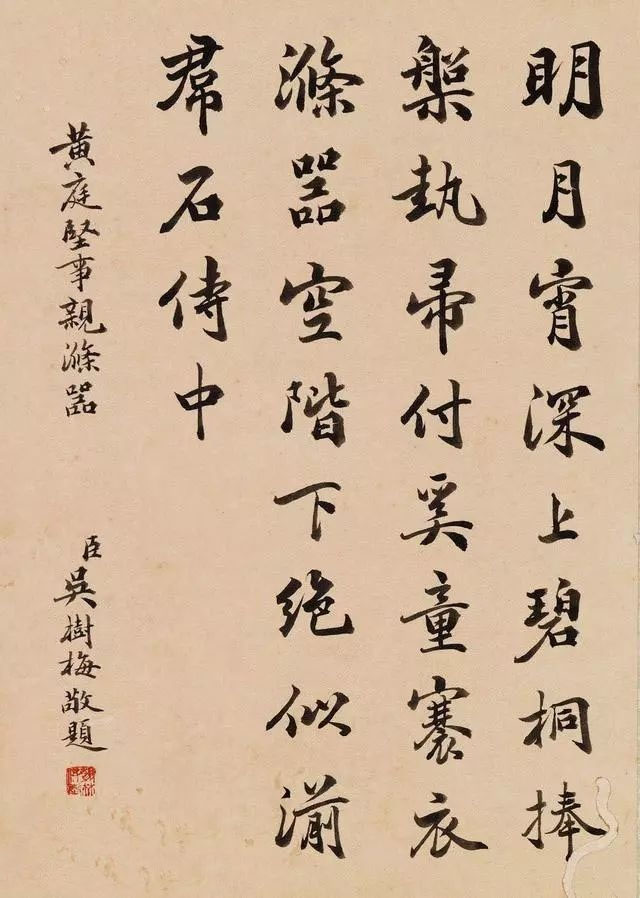 明月宵深上碧桐捧
槃執帚付奚童褰衣
滌器空階下絕似湔
帬石侍中
黃庭堅事親滌器
臣吳樹梅敬題